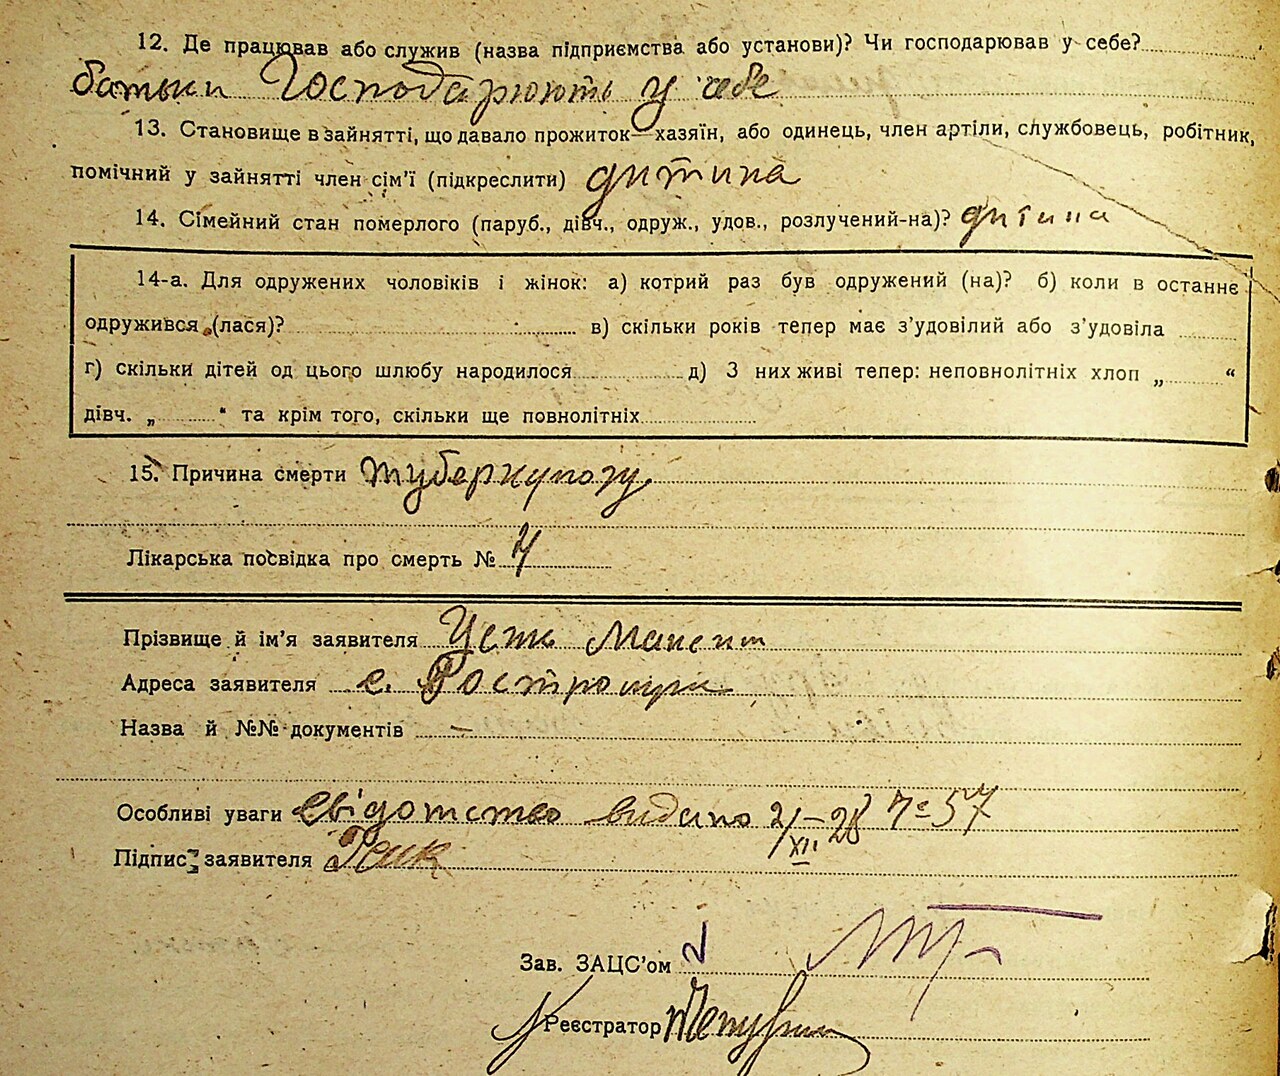 12. Де працював або служив (назва підприємства або установи)? Чи господарював у себе?
батьки Господарюють у себе
13. Становище в зайнятті, що давало прожиток—хазяїн, або одинець, член артіли, службовець, робітник,
помічний у зайнятті член сім'ї (підкреслити) дитина
14. Сімейний стан померлого (паруб., дівч., одруж., удов., розлучений-на)? дитина
14-а. Для одружених чоловіків і жінок: а) котрий раз був одружений (на)? б) коли в останнє
одружився (лася)? в) скільки років тепер має з'удовілий або з'удовіла
г) скільки дітей од цього шлюбу народилося д) З них живі тепер: неповнолітніх хлоп „ “
дівч. „ “ та крім того, скільки ще повнолітніх
15. Причина смерти туберкульозу
Лікарська посвідка про смерть №
Прізвище й ім'я заявителя Максим
Адреса заявителя с.
Назва й №№ документів —
Особливі уваги Свідотство видано 2/XII—28
Підпис заявителя
Зав. ЗАЦС'ом
Реєстратор